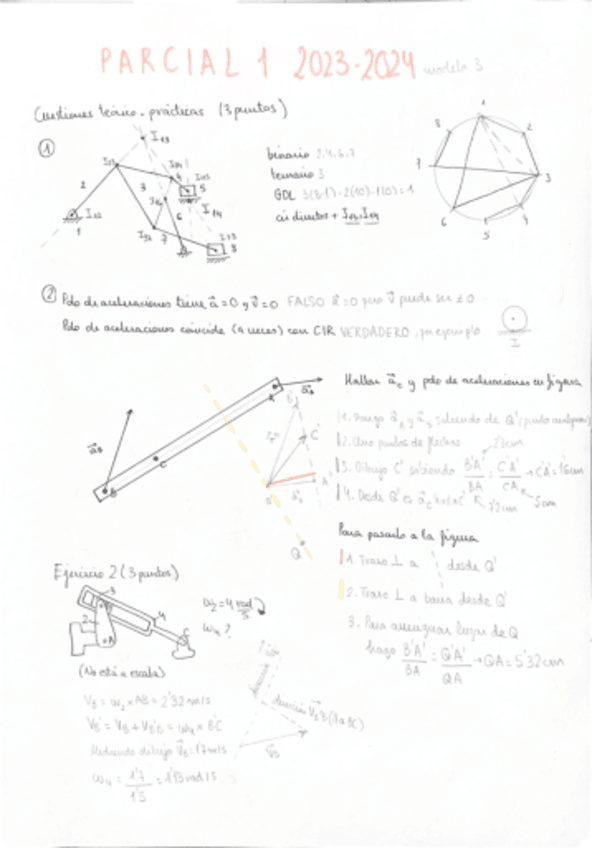 PARCIAL 1 2023-2024 modelo 3
Cuestiones teórico-prácticas (3 puntos)
1
I13
I23
2
3
4
5
6
7
8
I12
1
binario 2,4,6,7
ternario 3
GDL 3(8-1)-2(10)-1(0)=1
cir directos + I13, I14
1
2
3
4
5
6
7
8
2 Polo de aceleraciones tiene a=0 y v=0 FALSO a=0 pero v puede ser ≠0
Polo de aceleraciones coincide (a veces) con CIR VERDADERO, por ejemplo
I
Hallar ac y polo de aceleraciones en figura
2. Uno puntas de flechas
3. Dibujo C' sabiendo B'A'/BA = C'A'/CA → C'A'=1'6cm
5cm
4. Desde Q' es ac hasta C'
A
B
C
C'
A'
Q
Para pasarlo a la figura
1. Trazo ⊥ a desde Q'
2. Trazo ⊥ a barra desde Q'
3. Para averiguar lugar de Q
hago B'A'/BA = Q'A'/QA → QA=5'32cm
Ejercicio 2 (3 puntos)
3
2
4
A
C
ω2=4 rad/s
ω4?
(No está a escala)
VB = ω2 × AB = 2'32 m/s
VB' = VB + VB'B = ω4 × B'C
Midiendo dibujo VB'=1'7m/s
ω4 = 1'7/1'5 = 1'13 rad/s
dirección VB'B (∥ a BC)
VB